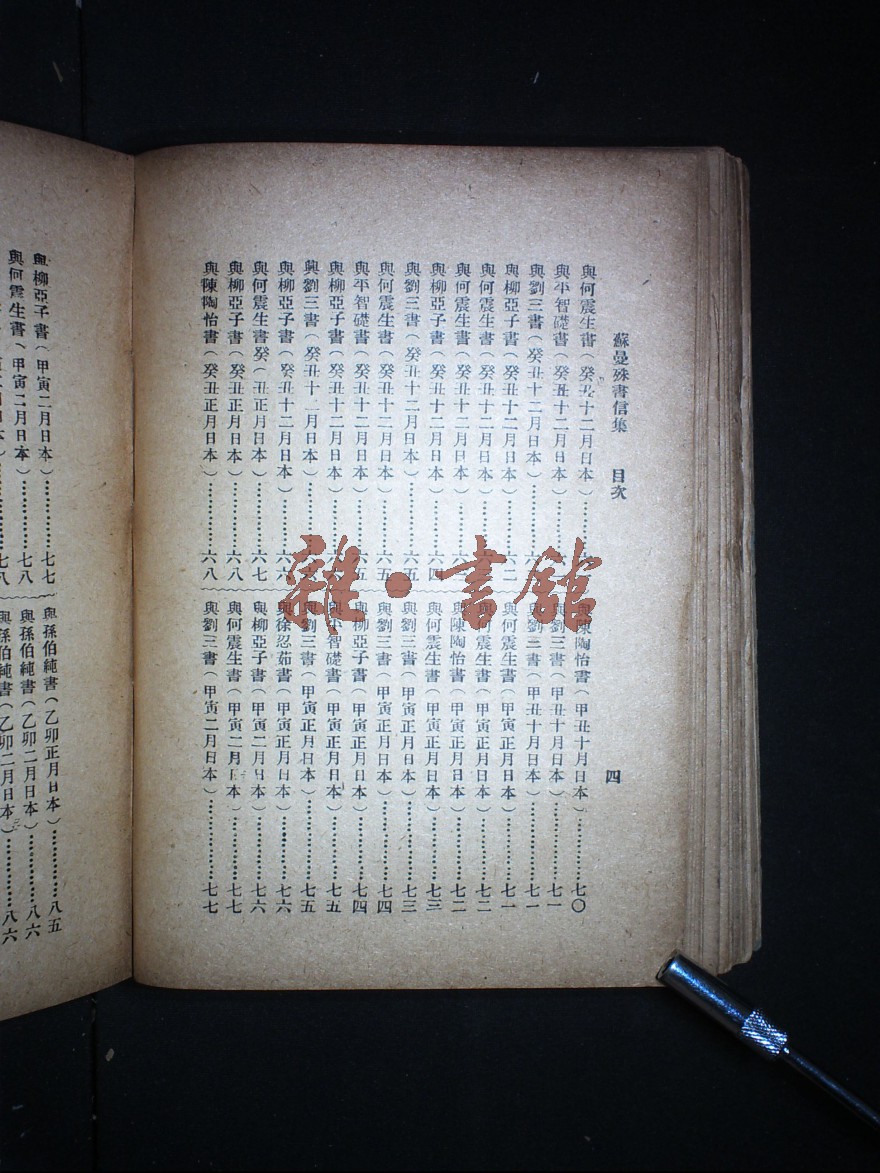 蘇曼殊書信集 目次 四
與何震生書(癸丑十二月日本)…………
與平智礎書(癸丑十二月日本)…………
與劉三書(癸丑十二月日本)…………
與柳亞子書(癸丑十二月日本)…………六二
與何震生書(癸丑十二月日本)…………
與何震生書(癸丑十二月日本)…………
與柳亞子書(癸丑十二月日本)…………六四
與劉三書(癸丑十二月日本)…………六五
與何震生書(癸丑十二月日本)…………六五
與平智礎書(癸丑十二月日本)…………六五
與柳亞子書(癸丑十二月日本)…………
與劉三書(癸丑十一月日本)…………
與柳亞子書(癸丑十二月日本)…………六六
與何震生書癸(丑正月日本)…………六七
與柳亞子書(癸丑正月日本)…………六八
與陳陶怡書(癸丑正月日本)…………六八
與陳陶怡書(甲丑十月日本)…………七〇
與劉三書(甲丑十月日本)…………七一
與劉三書(甲丑十月日本)…………七一
與何震生書(甲寅正月日本)…………七一
與何震生書(甲寅正月日本)…………七二
與陳陶怡書(甲寅正月日本)…………七二
與何震生書(甲寅正月日本)…………七三
與劉三書(甲寅正月日本)…………七三
與劉三書(甲寅正月日本)…………七四
與柳亞子書(甲寅正月日本)…………七四
與平智礎書(甲寅正月日本)…………七五
與劉三書(甲寅正月日本)…………七五
與徐忍茹書(甲寅正月日本)…………七六
與柳亞子書(甲寅二月日本)…………七六
與何震生書(甲寅二月日本)…………七七
與劉三書(甲寅二月日本)…………七七
與柳亞子書(甲寅二月日本)…………七七
與何震生書(甲寅二月日本)…………七八
與孫伯純書(乙卯正月日本)…………八五
與孫伯純書(乙卯二月日本)…………八六
與孫伯純書(乙卯二月日本)…………八六
雜·書館